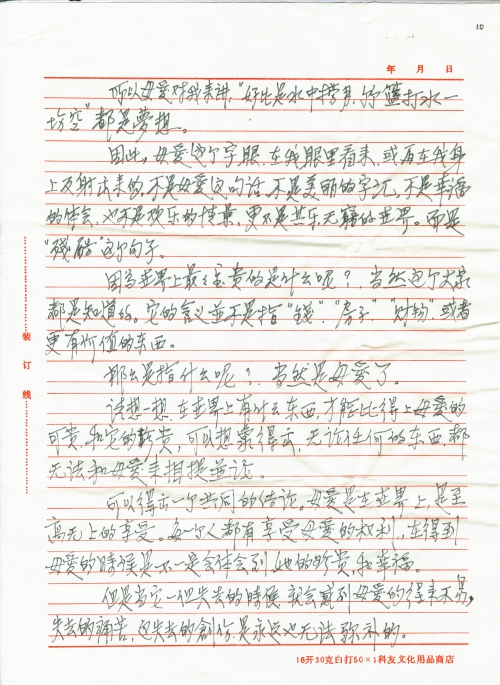 10
年 月 日
所以母愛对我来讲，“好比是水中捞月，竹篮打水一
场空”都是夢想。
因此，母愛这个字眼，在我眼里看来，或再在我身
上反射出来的，不是母愛这句话，不是美丽的字沅，不是幸福
的体会，也不是欢乐的情景，更不是其乐无窮的世界。而是
“残酷”这个句子。
因为世界上最宝贵的是什么呢？，当然这个大家
都是知道的。它的含义並不是指“钱”“房子”“财物”或者
更有价值的东西。
那么是指什么呢？．当然是母愛了。
请想一想，在世界上有什么东西，才能比得上母愛的
可贵和它的珍贵，可以想象得出，无论任何的东西，都
无法和母愛来相提並论。
可以得出一个共同的结论。母愛是在世界上，是至
高无上的享受。每一个人都有享受母愛的权利，在得到
母愛的時候是不一定会体会到她的珍贵，和幸福。
但是当它一但失去的時候，就会感到母愛的得来不易，
失去的痛苦，这失去的創伤是永远也无法弥补的。
装 订 线
16开30克白打50×1科友文化用品商店